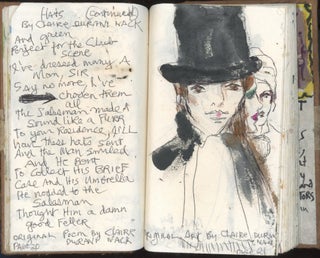 Hats (Continued)
By CLAIRE DURAND NACK
And green
Perfect for the Club
Scene
I've dressed many A
Man, SIR
Say no more, I've
chosen them
all
The Salesman made A
Sound like a Purr
To your Residence, I'll
have these hats sent
And the Man Smiled
And He Bent
To Collect His BRIEF
Case And His Umbrella
He nodded to the
Salesman
Thought Him a damn
good Feller
ORIGINAL Poem By CLAIRE
PAGE 20 DURAND NACK
ORIGINAL Art By CLAIRE DURAND
NACK
PAGE 21